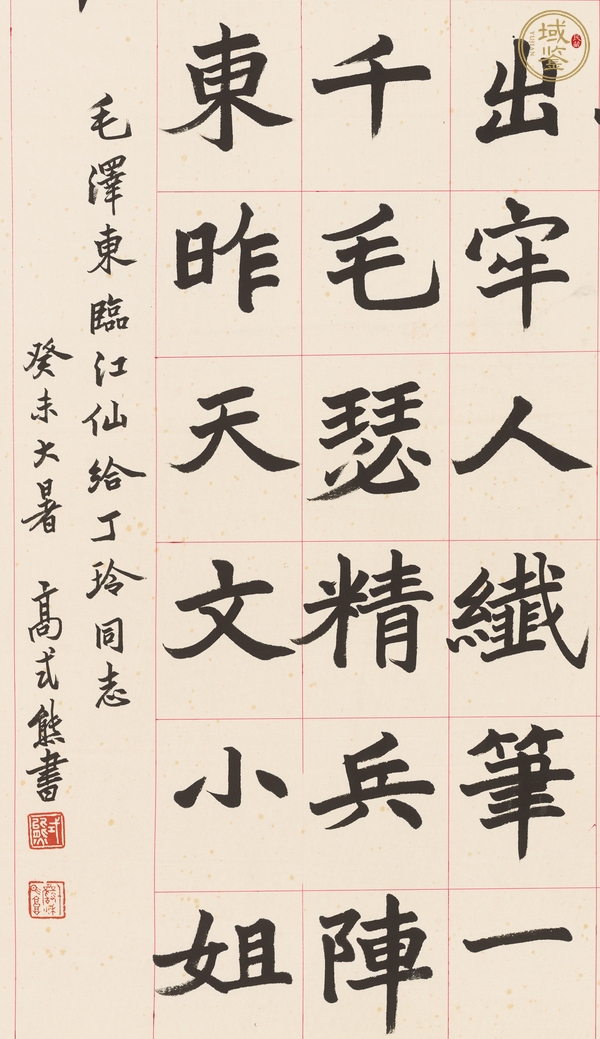 出牢人纖筆一
千毛瑟精兵陣
東昨天文小姐
毛澤東臨江仙給丁玲同志
癸未大暑 高式熊書
式熊
域鑒